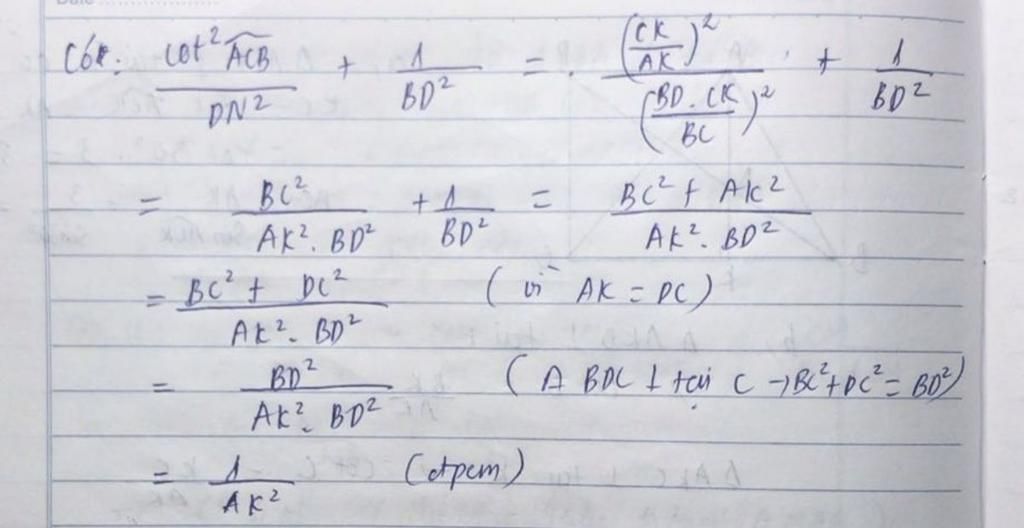 Có: cot² ACB / DN² + 1 / BD² = (CK / AK)² / (BD . CK / BC)² + 1 / BD²
= BC² / AK² . BD² + 1 / BD² = BC² + AK² / AK² . BD²
= BC² + DC² / AK² . BD² (vì AK = DC)
= BD² / AK² . BD² (Δ BDC ⊥ tại C → BC² + DC² = BD²)
= 1 / AK² (đpcm)